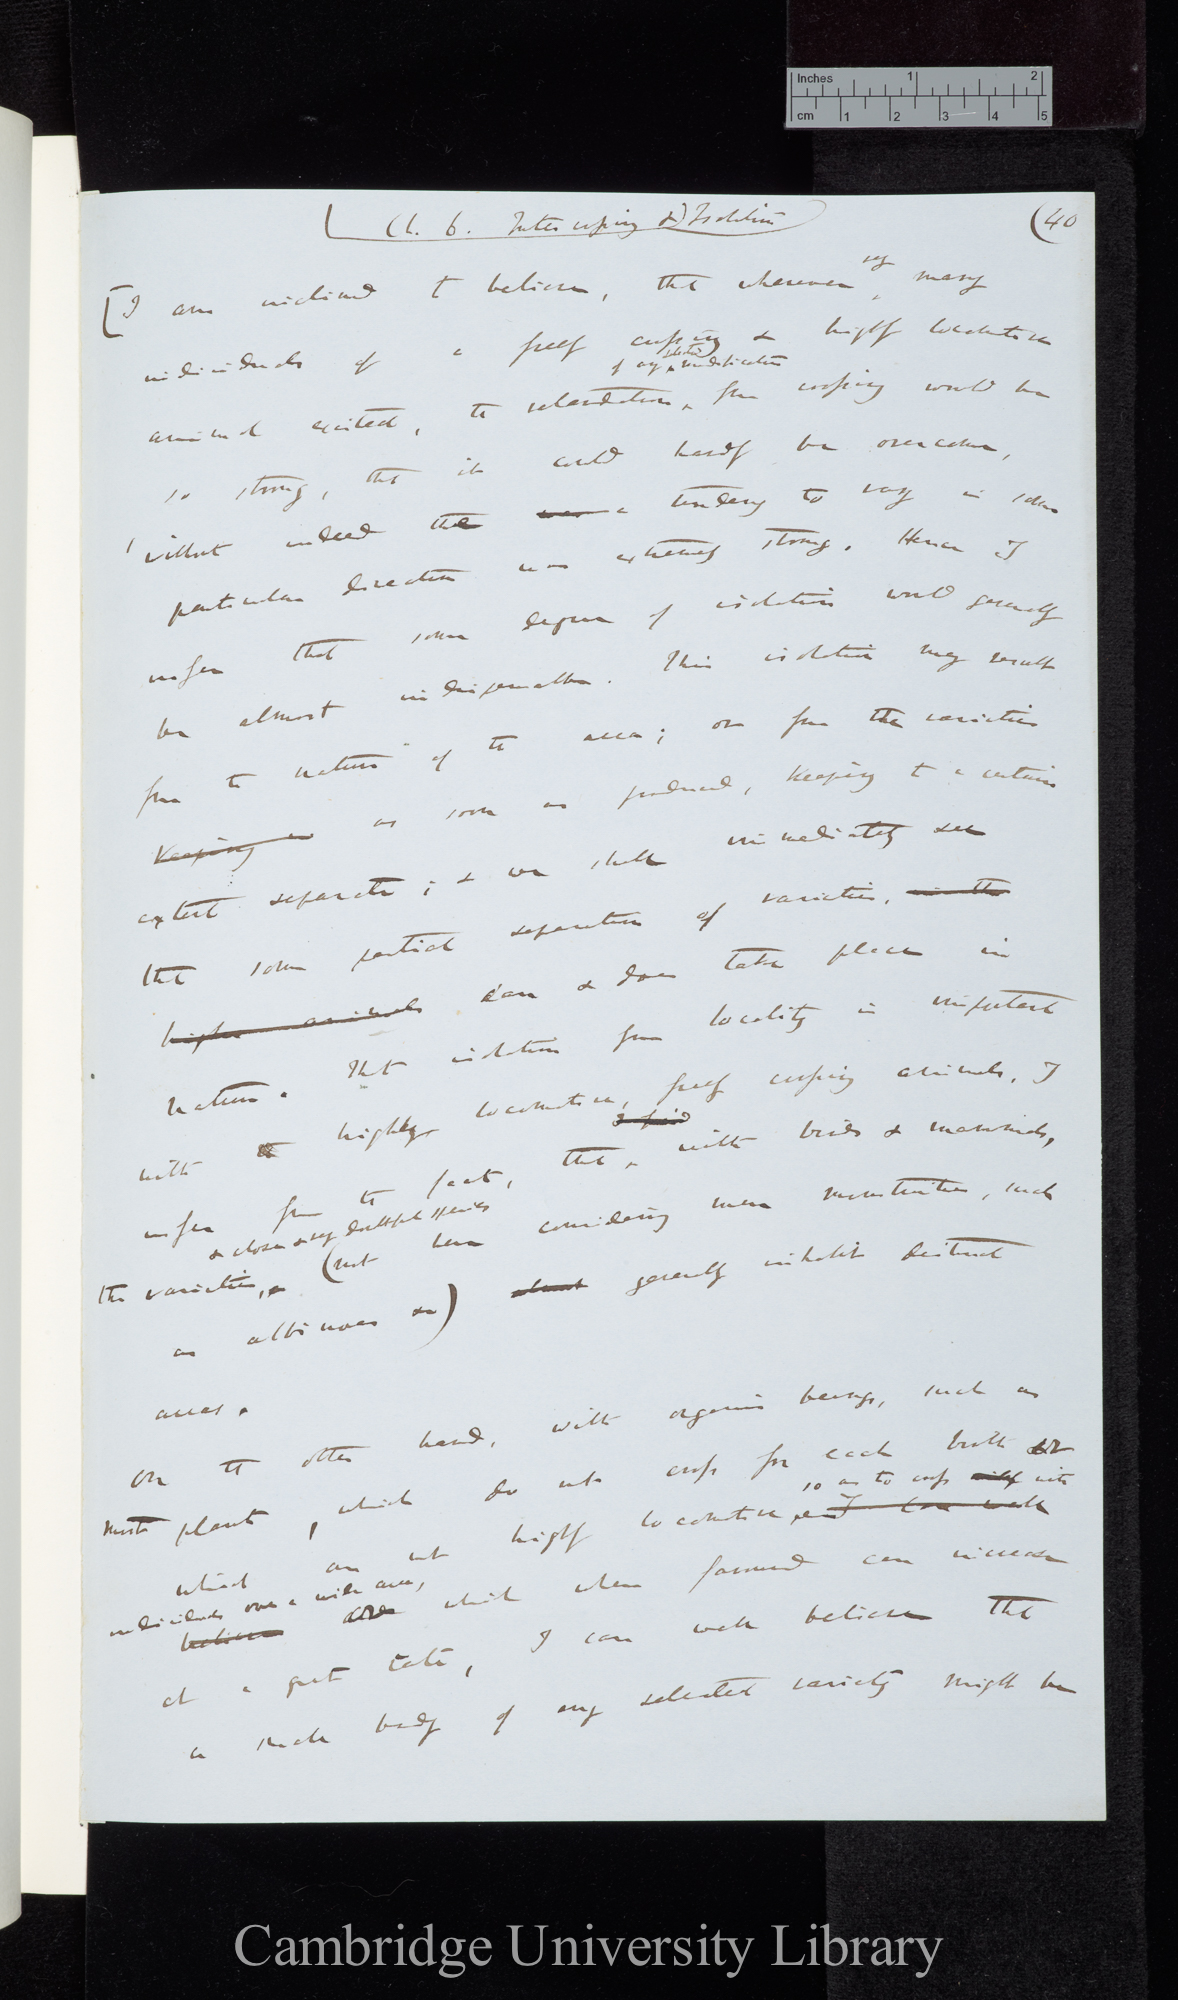 Inches 1 2
cm 1 2 3 4 5
Ch. 6. Intercrossing & Isolation
(40
very
[I am inclined to believe, that wherever many
individuals of a freely crossing & highly locomotive
of any modification
animal existed, the retardation, from crossing would be
so strong, that it could hardly be overcome,
without indeed the was a tendency to vary in some
particular direction was extremely strong. Hence I
infer that some degree of isolation would generally
be almost indispensable. This isolation may result
from the nature of the area; or from the varieties
keeping as soon as produced, keeping to a certain
extent separate; & we shall immediately see
that some partial separation of varieties, in the
higher animals can & does take place in
nature. That isolation from locality is important
with highly locomotive, freely crossing animals, I
infer from the fact, that, with birds & mammals,
& close & very doubtful species
the varieties, (not here considering mere monstrosities, such
as albinoes &c) almost generally inhabit distinct
areas.
On the other hand, with organic beings, such as
most plants, which do not cross for each birth or
so as to cross with
which are not highly locomotive, I can well
individuals over a wide area,
believe which when formed can increase
at a great rate, I can well believe that
a small body of any selected variety might be
Cambridge University Library